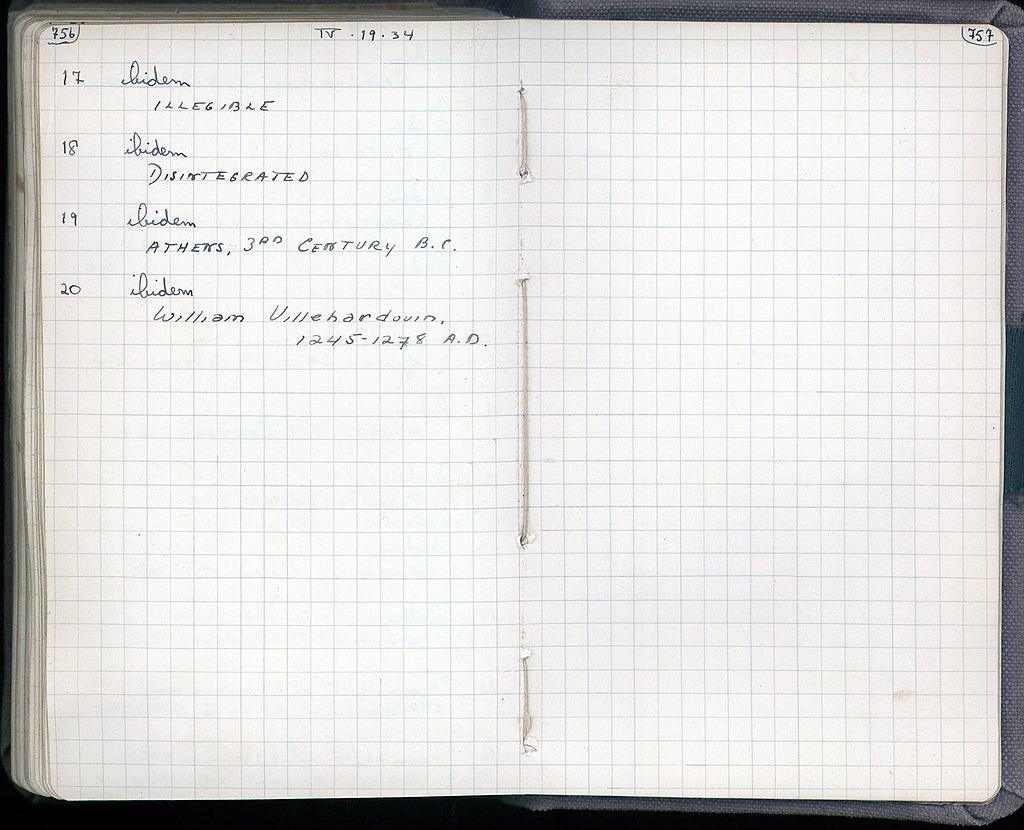 756
IV · 19 · 34
17 ibidem
ILLEGIBLE
18 ibidem
DISINTEGRATED
19 ibidem
ATHENS, 3RD CENTURY B.C.
20 ibidem
William Villehardouin,
1245-1278 A.D.
757